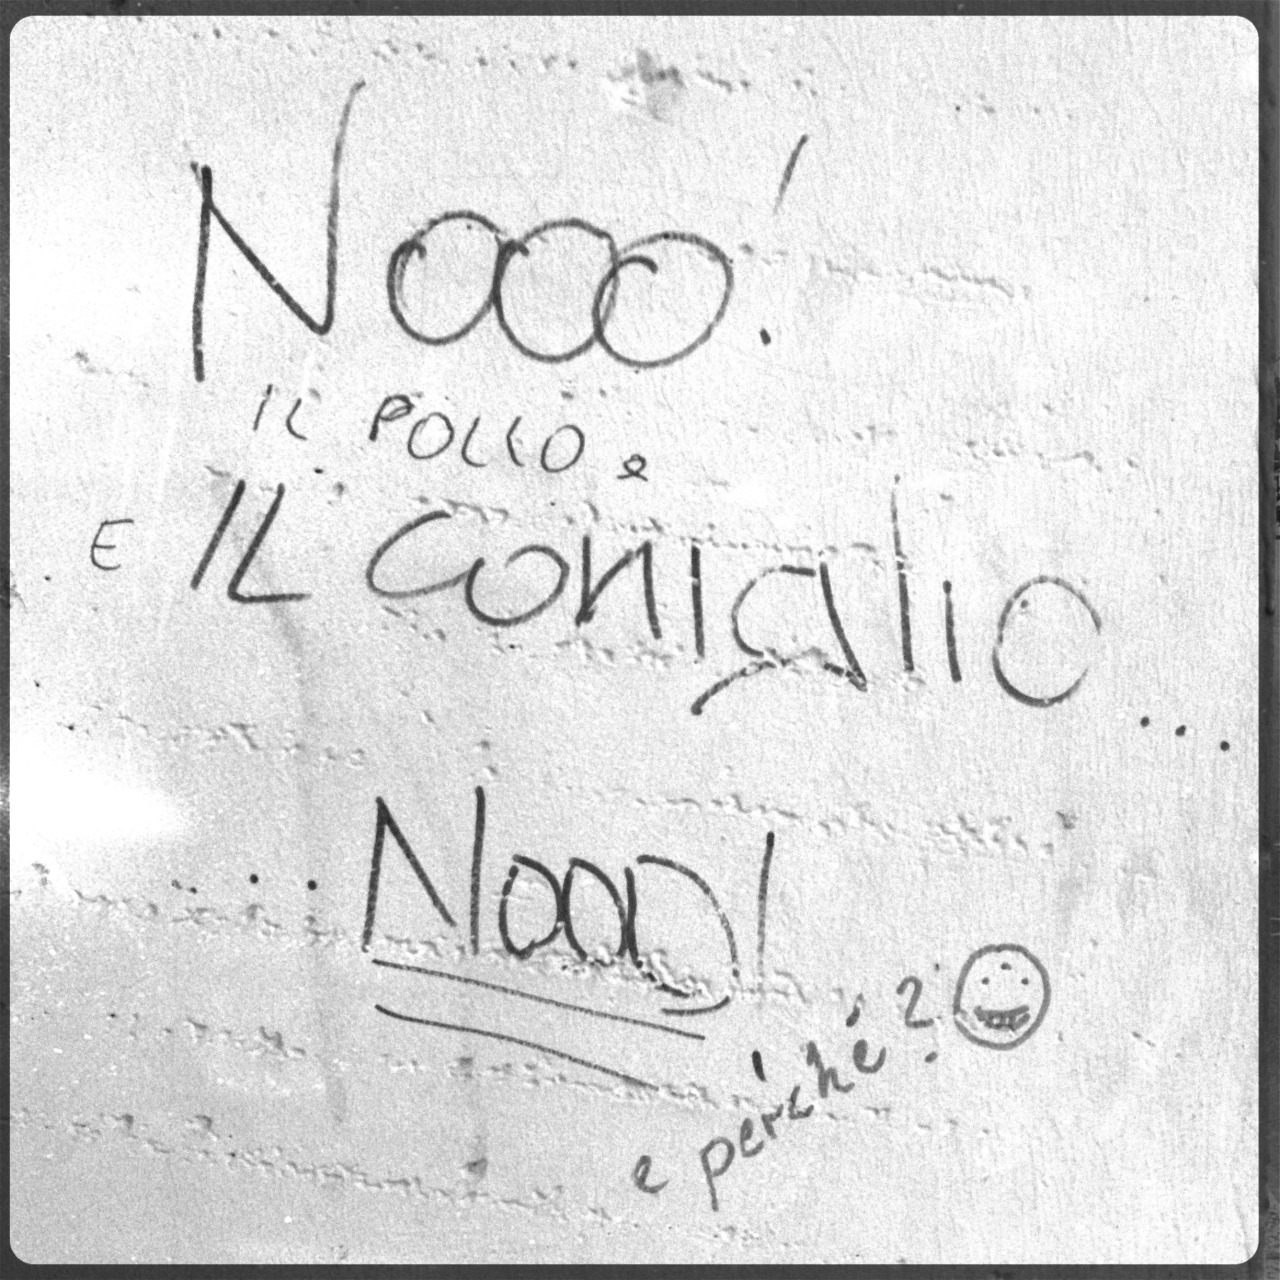 Nooo!
IL POLLO e
E IL Coniglio...
... Nooo!
e perché?